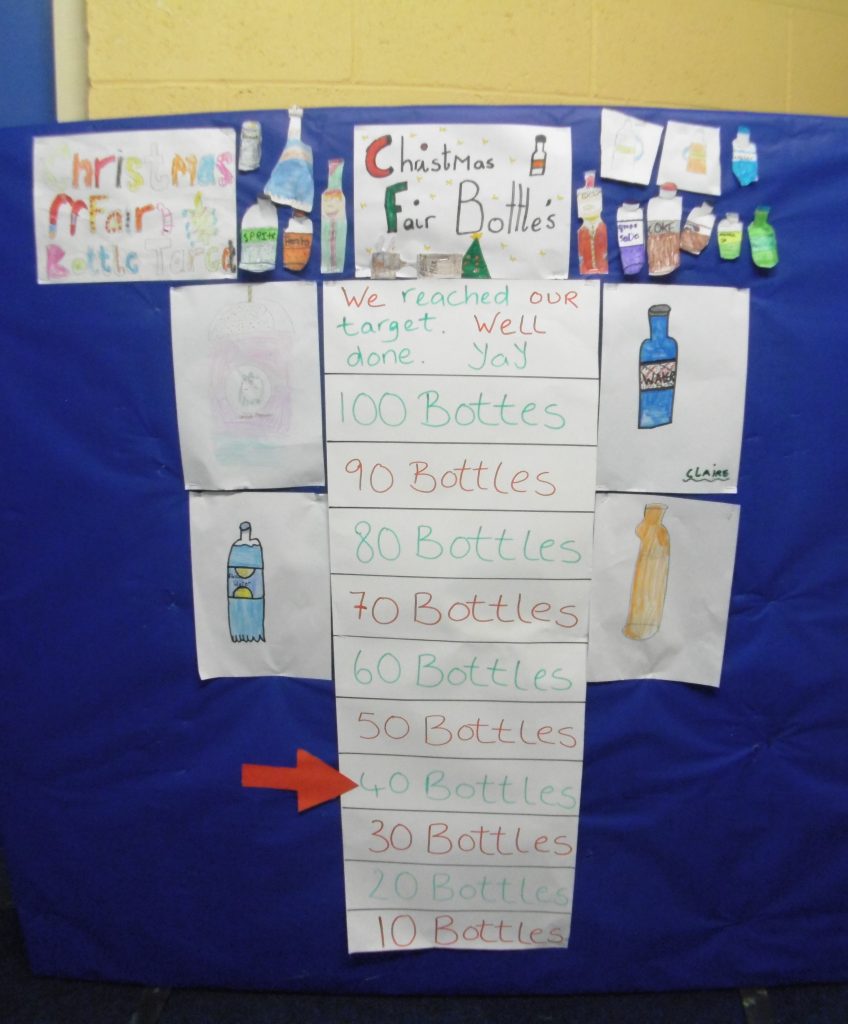 Christmas
Fair
Bottle Target
Christmas
Fair Bottle's
SPRITE
COKE
We reached OUR
target. Well
done. Yay
100 Bottes
90 Bottles
80 Bottles
70 Bottles
60 Bottles
50 Bottles
40 Bottles
30 Bottles
20 Bottles
10 Bottles
WATER
CLAIRE